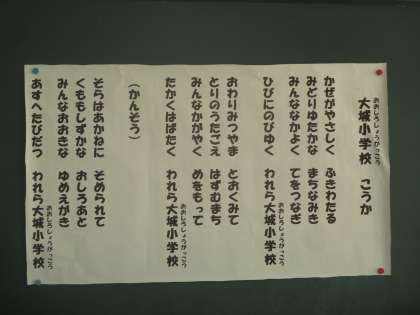 おおしろしょうがっこう
大城小学校 こうか
かぜがやさしく ふきわたる
みどりゆたかな まちなみき
みんななかよく てをつなぎ
おおしろしょうがっこう
ひびにのびゆく われら大城小学校
おわりみつやま とおくみて
とりのうたごえ はずむまち
みんなかがやく めをもって
おおしろしょうがっこう
たかくはばたく われら大城小学校
(かんそう)
そらはあかねに そめられて
くももしずかな おしろあと
みんなおおきな ゆめえがき
おおしろしょうがっこう
あすへたびだつ われら大城小学校